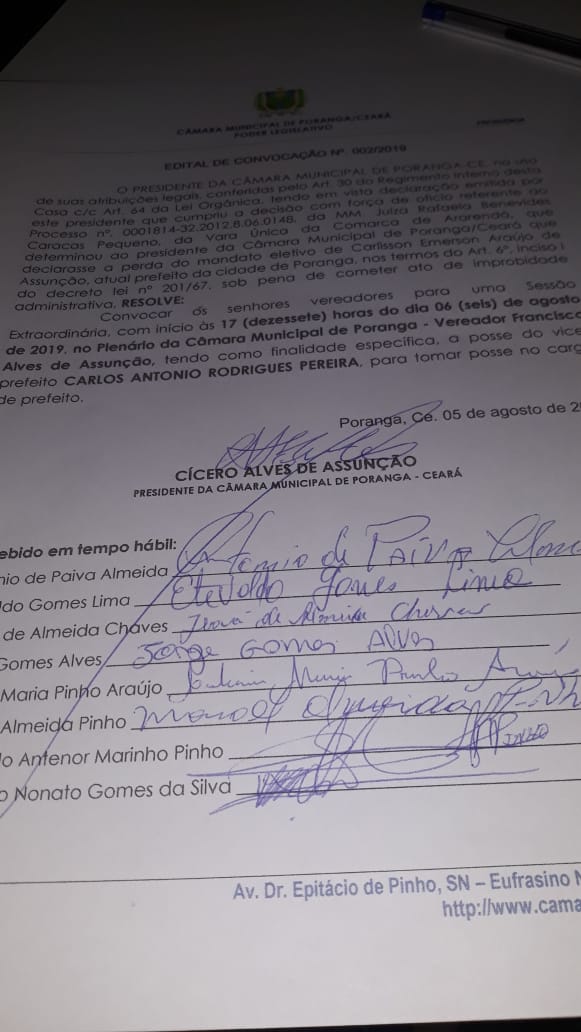 CÂMARA MUNICIPAL DE PORANGA/CEARÁ
PODER LEGISLATIVO
PRESIDÊNCIA
EDITAL DE CONVOCAÇÃO Nº. 002/2019
O PRESIDENTE DA CÂMARA MUNICIPAL DE PORANGA-CE, no uso
de suas atribuições legais, conferidas pelo Art. 30 do Regimento Interno desta
Casa c/c Art. 64 da Lei Orgânica, tendo em vista declaração emitida por
este presidente que cumpriu a decisão com força de ofício referente ao
Processo nº. 0001814-32.2012.8.06.0148, da MM. Juíza Rafaela Benevides
Caracas Pequeno, da Vara Única da Comarca de Ararendá, que
determinou ao presidente da Câmara Municipal de Poranga/Ceará que
declarasse a perda do mandato eletivo de Carlisson Emerson Araújo de
Assunção, atual prefeito da cidade de Poranga, nos termos do Art. 6º, inciso I
do decreto lei nº 201/67, sob pena de cometer ato de improbidade
administrativa, RESOLVE:
Convocar os senhores vereadores para uma Sessão
Extraordinária, com início às 17 (dezessete) horas do dia 06 (seis) de agosto
de 2019, no Plenário da Câmara Municipal de Poranga - Vereador Francisco
Alves de Assunção, tendo como finalidade específica, a posse do vice
prefeito CARLOS ANTONIO RODRIGUES PEREIRA, para tomar posse no carg
de prefeito.
Poranga, Ce. 05 de agosto de 2
CÍCERO ALVES DE ASSUNÇÃO
PRESIDENTE DA CÂMARA MUNICIPAL DE PORANGA - CEARÁ
ebido em tempo hábil:
nio de Paiva Almeida Antonio de PAIVA
ldo Gomes Lima Etevoldo Gomes Lima
de Almeida Chaves de Almeida Chaves
Gomes Alves Jorge GOMES ALVES
Maria Pinho Araújo Maria Pinho
Almeida Pinho Manoel Almeida
lo Antenor Marinho Pinho PINHO
o Nonato Gomes da Silva
Av. Dr. Epitácio de Pinho, SN – Eufrasino N
http://www.cama